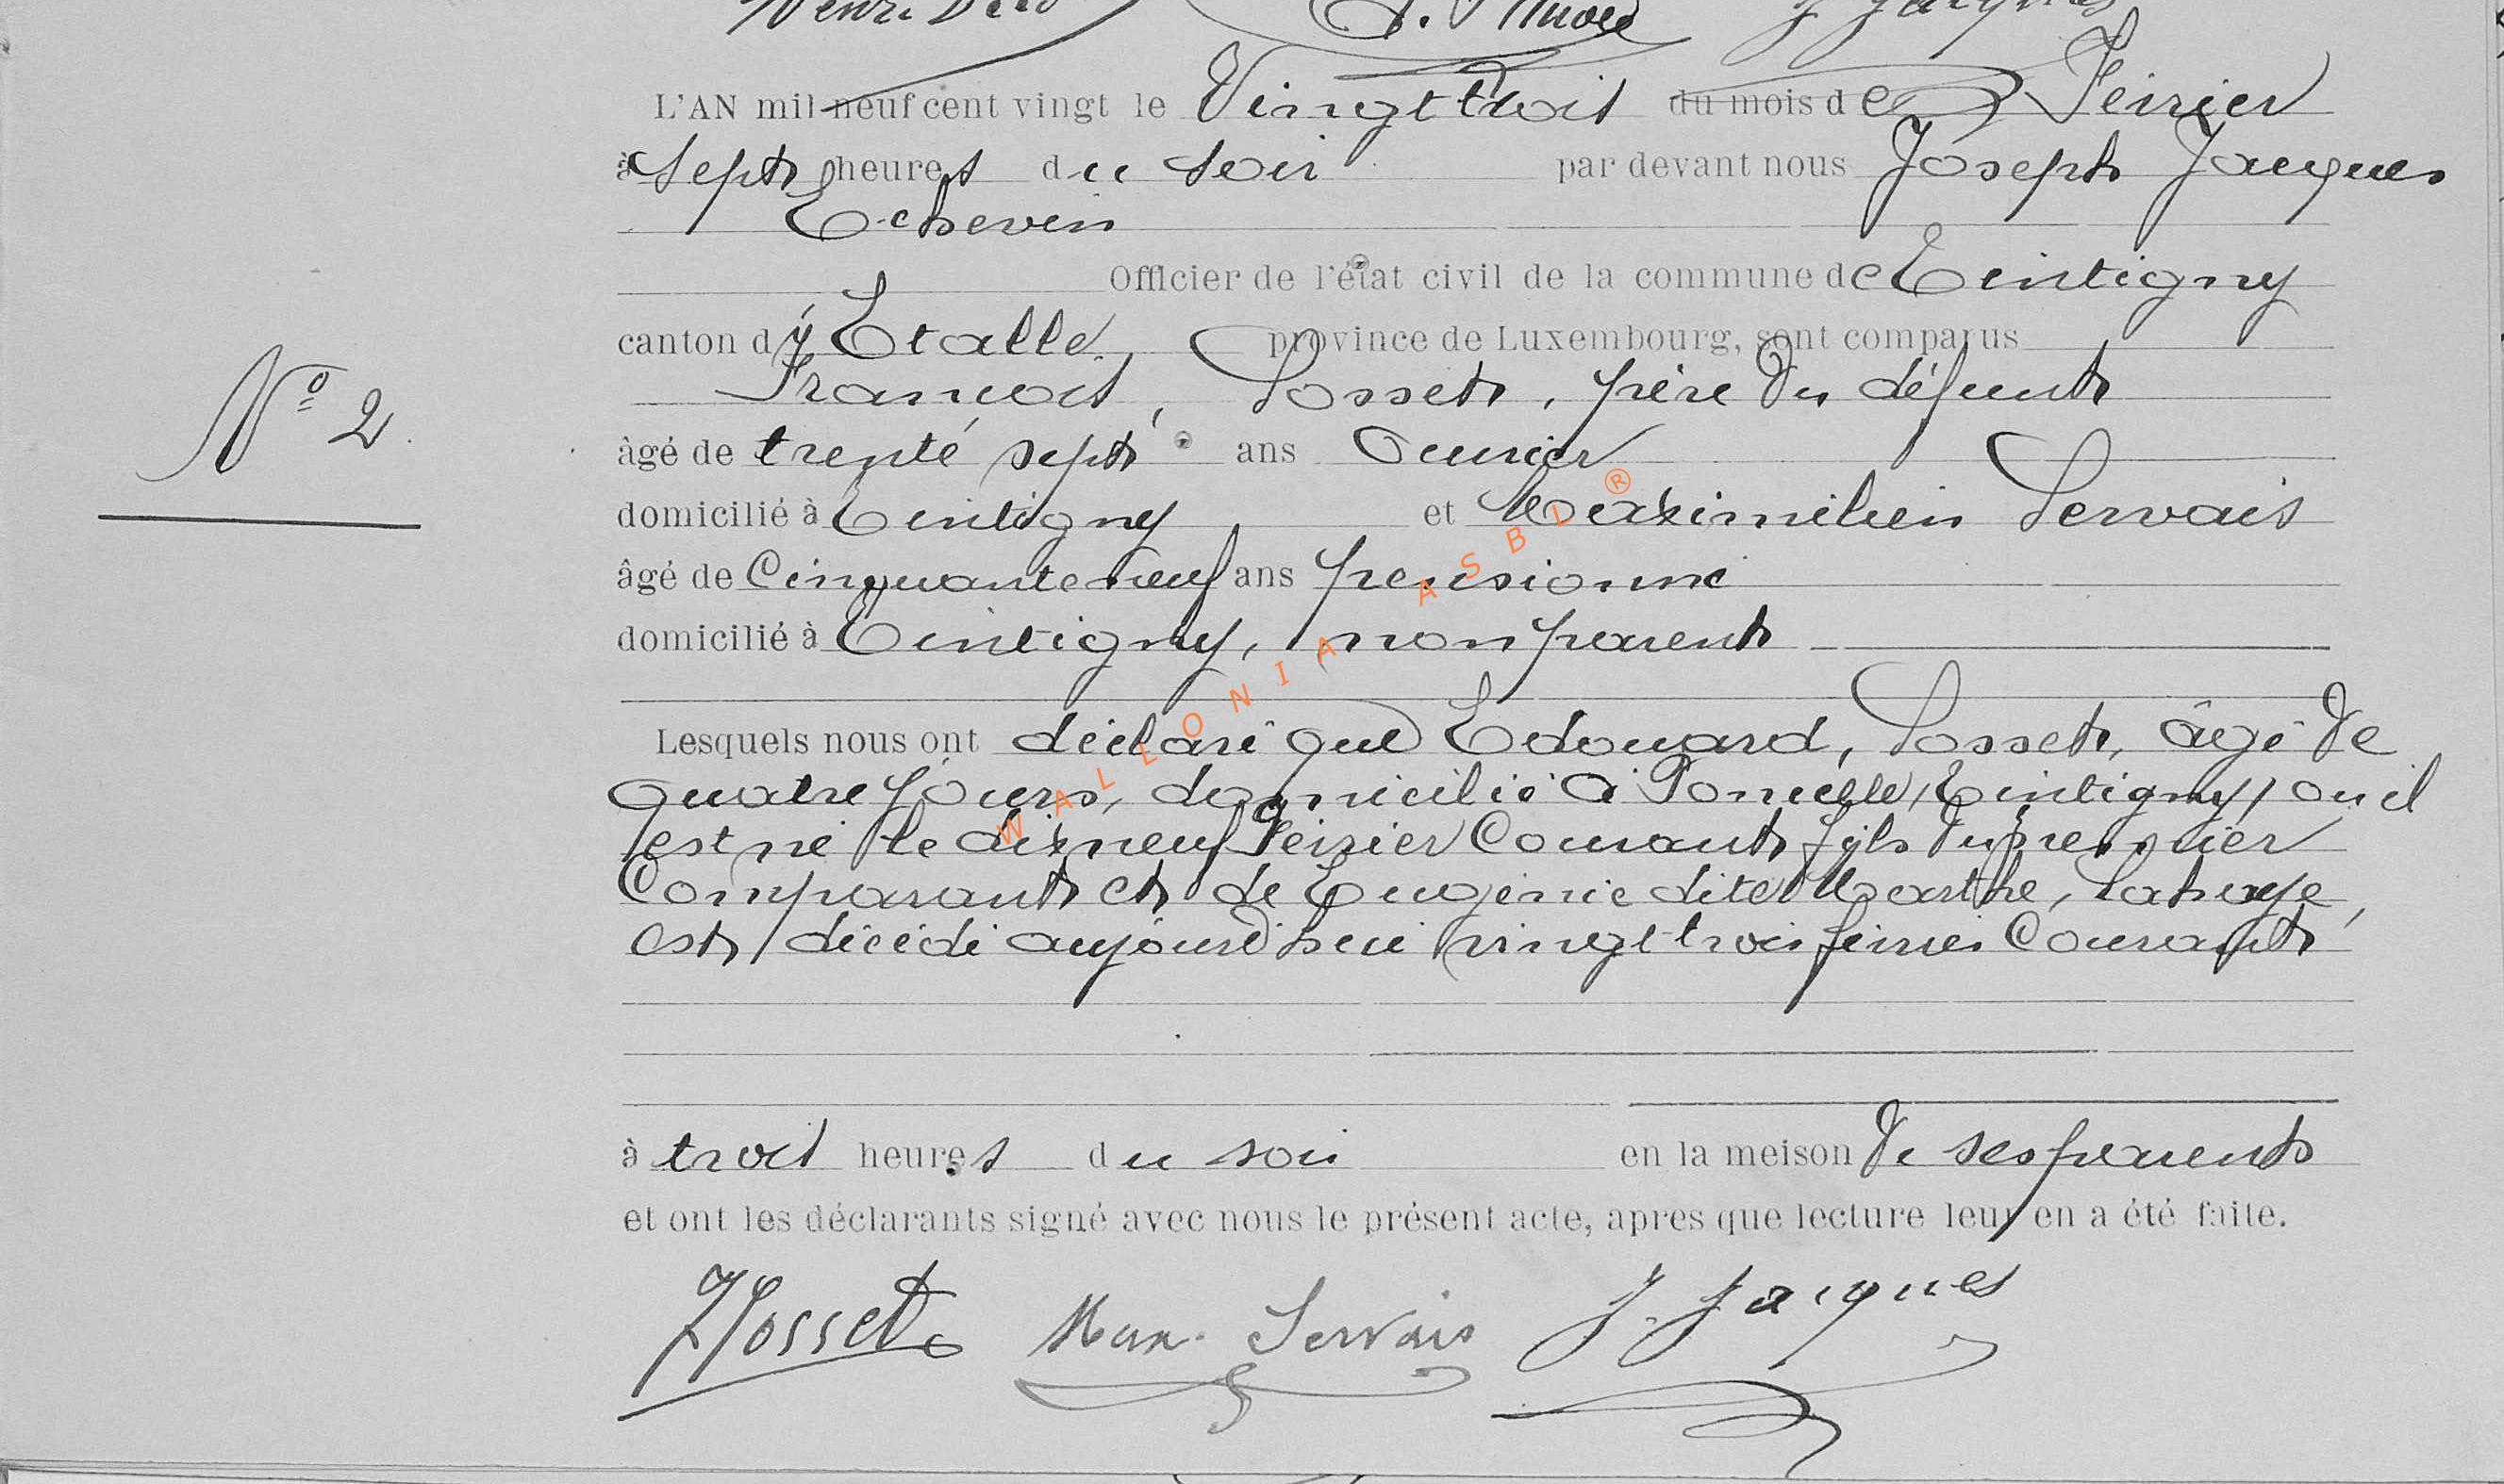 Henri
J. Jacques
L'AN mil neuf cent vingt le Vingt trois du mois de Février
à Sept heures du soir par devant nous Joseph Jacques
Echevin
Officier de l'état civil de la commune de Tintigny
canton d'Etalle, province de Luxembourg, sont comparus
N° 2
François, Gosset, père du défunt
âgé de trente sept ans Ouvrier
domicilié à Tintigny et Maximilien Servais
âgé de Cinquante neuf ans pensionné
domicilié à Tintigny, non parent
Lesquels nous ont déclaré que Edouard, Gosset, âgé de
quatre jours, domicilié à Poncelle, Tintigny, où il
est né le dix neuf Février Courant, fils du premier
Comparant et de Eugénie dite Marthe, Lahaye,
est décédé aujourd'hui vingt trois février Courant
à trois heures du soir en la meison de ses parents
et ont les déclarants signé avec nous le présent acte, apres que lecture leur en a été faite.
Gosset Max. Servais J. Jacques
WALLONIA ASBL ®